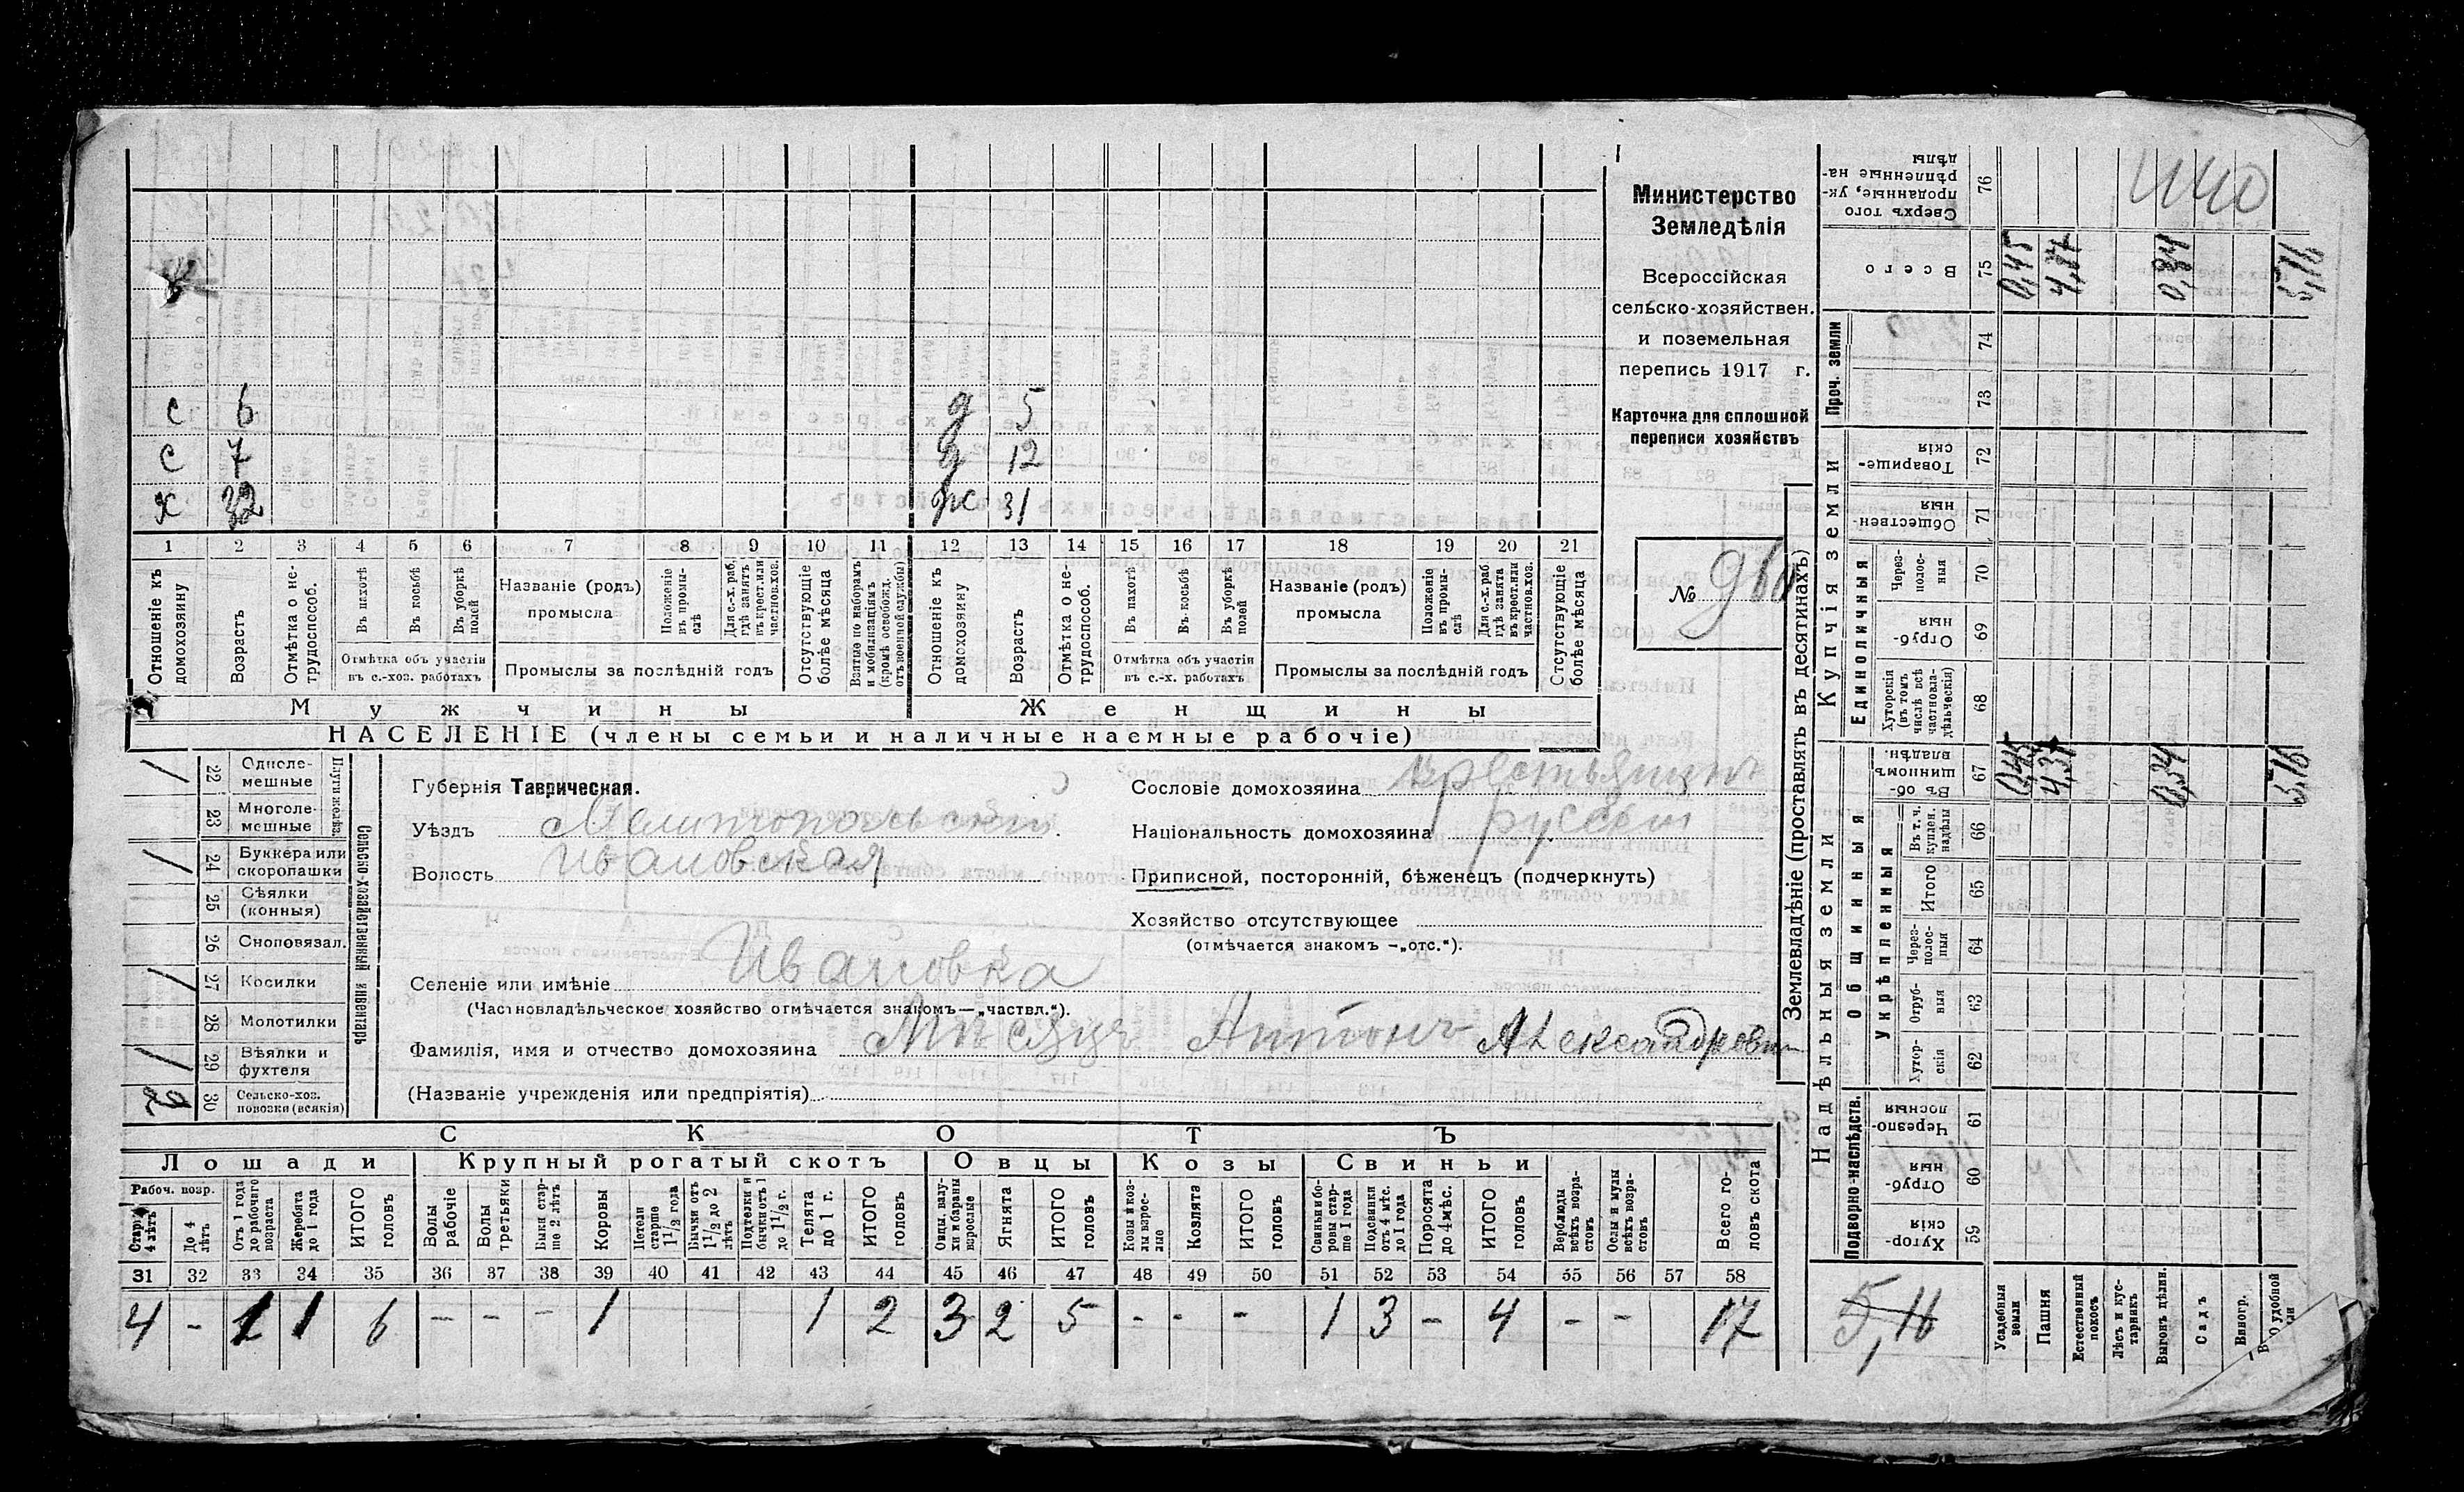 с 6 д 5
с 7 д 12
х 32 ж 31
1 2 3 4 5 6 7 8 9 10 11 12 13 14 15 16 17 18 19 20 21
Отношеніе къ домохозяину
Возрастъ
Отмѣтка о не-трудоспособ.
Въ пахотѣ
Въ косьбѣ
Въ уборкѣ полей
Отмѣтка объ участіи
въ с.-хоз. работахъ
Названіе (родъ)
промысла
Положеніе въ промы-слѣ
Для с.-х. раб. гдѣ занятъ въ крест. или частнов. хоз.
Промыслы за послѣдній годъ
Отсутствующіе болѣе мѣсяца
Взятые по наборамъ и мобилизаціямъ (кромѣ освобожд. отъ военной службы)
Отношеніе къ домохозяину
Возрастъ
Отмѣтка о не-трудоспособ.
Въ пахотѣ
Въ косьбѣ
Въ уборкѣ полей
Отмѣтка объ участіи
въ с.-х. работахъ
Названіе (родъ)
промысла
Положеніе въ промы-слѣ
Для с.-х. раб. гдѣ занята въ крест. или частнов. хоз.
Промыслы за послѣдній годъ
Отсутствующіе болѣе мѣсяца
Мужчины Женщины
НАСЕЛЕНІЕ (члены семьи и наличные наемные рабочіе)
Министерство
Земледѣлія
Всероссійская
сельско-хозяйствен.
и поземельная
перепись 1917 г.
Карточка для сплошной
переписи хозяйствъ
№
Сельско-хозяйственный инвентарь
Плуги желѣз.
/ 22 Одноле-мешные
23 Многоле-мешные
/ 24 Буккера или скоропашки
25 Сѣялки (конныя)
26 Сноповязал.
/ 27 Косилки
28 Молотилки
/ 29 Вѣялки и фухтеля
2 30 Сельско-хоз. повозки (всякія)
Губернія Таврическая.
Уѣздъ Мелитопольскій
Волость Ивановская
Селеніе или имѣніе Ивановка
(Частновладѣльческое хозяйство отмѣчается знакомъ—„частвл.“).
Фамилія, имя и отчество домохозяина Мѣсяцъ Антонъ Александрович
(Названіе учрежденія или предпріятія)
Сословіе домохозяина крестьянинъ
Національность домохозяина русскій
Приписной, посторонній, бѣженецъ (подчеркнуть)
Хозяйство отсутствующее
(отмѣчается знакомъ —„отс.“).
СКОТЪ
Лошади Крупный рогатый скотъ Овцы Козы Свиньи
Рабоч. возр.
Старше 4 лѣтъ
До 4 лѣтъ
Отъ 1 года до рабочаго возраста
Жеребята до 1 года
ИТОГО головъ
Волы рабочіе
Волы третьяки
Быки стар-ше 2 лѣтъ
Коровы
Нетели старше 1 1/2 года
Бычки отъ 1 1/2 до 2 лѣтъ
Подтелки и бычки отъ 1 до 1 1/2 г.
Телята до 1 г.
ИТОГО головъ
Овцы, валу-хи и бараны взрослые
Ягнята
ИТОГО головъ
Козы и коз-лы взрос-лые
Козлята
ИТОГО головъ
Свиньи и бо-ровы стар-ше 1 года
Подсвинки отъ 4 мѣс. до 1 года
Поросята до 4 мѣс.
ИТОГО головъ
Верблюды всѣхъ возра-стовъ
Ослы и мулы всѣхъ возра-стовъ
Всего го-ловъ скота
31 32 33 34 35 36 37 38 39 40 41 42 43 44 45 46 47 48 49 50 51 52 53 54 55 56 57 58
4 - 1 1 6 - - - 1 1 2 3 2 5 - - - 1 3 - 4 - - 17
Землевладѣніе (проставлять въ десятинахъ)
Надѣльныя земли Купчія земли Проч. земли
Подворно-наслѣдств.
Общинныя
Укрѣпленныя
Единоличныя
Хутор-скія 59
Отруб-ныя 60
Черезпо-лосныя 61
Хутор-скія 62
Отруб-ныя 63
Через-полос-ныя 64
Итого 65
Въ т. ч. куплен. надѣлы 66
Въ об-щинномъ владѣн. 67
Хуторскія (въ томъ числѣ всѣ частновла-дѣльческія) 68
Отруб-ныя 69
Через-полос-ныя 70
Обществен-ныя 71
Товарище-скія 72
73
74
Всего 75
Сверхъ того проданные, ук-рѣпленные на-дѣлы 76
Усадебныя земли
Пашня
Естественный покосъ
Лѣсъ и кус-тарникъ
Выгонъ дѣлин.
Садъ
Виногр.
0,45 0,34 5,16
0,45 5,16
5,16